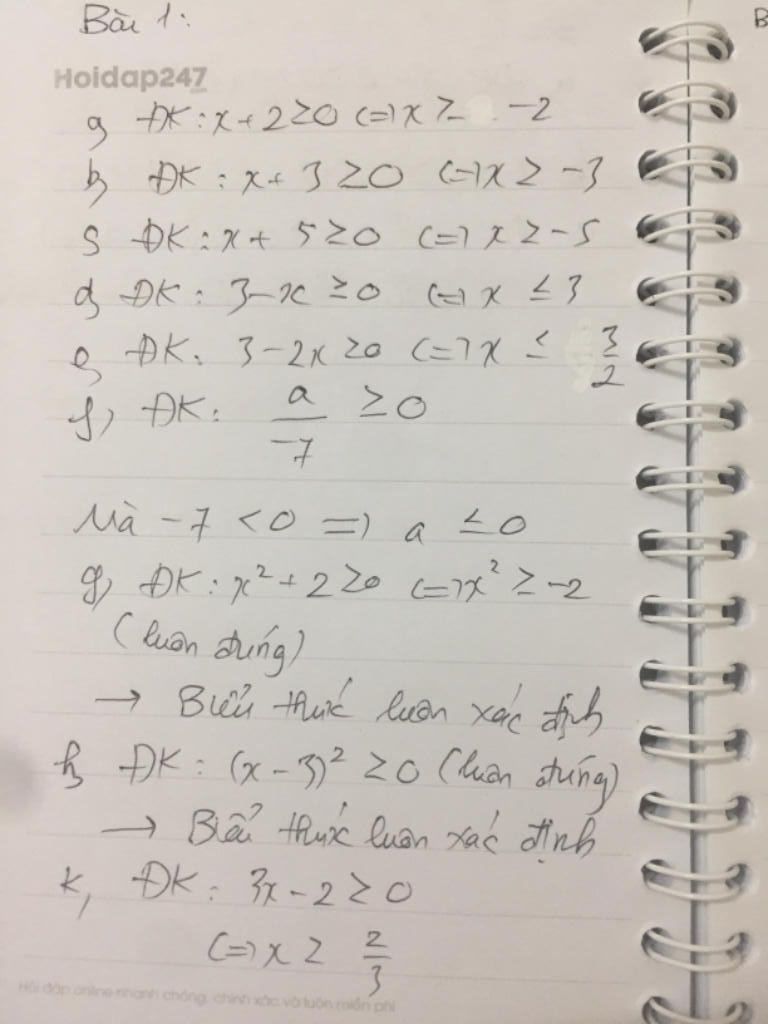 Bài 1:
B
Hoidap247
a, ĐK: x + 2 ≥ 0 (=) x ≥ -2
b, ĐK: x + 3 ≥ 0 (=) x ≥ -3
c, ĐK: x + 5 ≥ 0 (=) x ≥ -5
d, ĐK: 3 - x ≥ 0 (=) x ≤ 3
e, ĐK: 3 - 2x ≥ 0 (=) x ≤ 3/2
f, ĐK: a/-7 ≥ 0
Mà -7 < 0 =) a ≤ 0
g, ĐK: x² + 2 ≥ 0 (=) x² ≥ -2
(luôn đúng)
→ Biểu thức luôn xác định
h, ĐK: (x - 3)² ≥ 0 (luôn đúng)
→ Biểu thức luôn xác định
k, ĐK: 3x - 2 ≥ 0
(=) x ≥ 2/3
Hỏi đáp online nhanh chóng, chính xác và luôn miễn phí